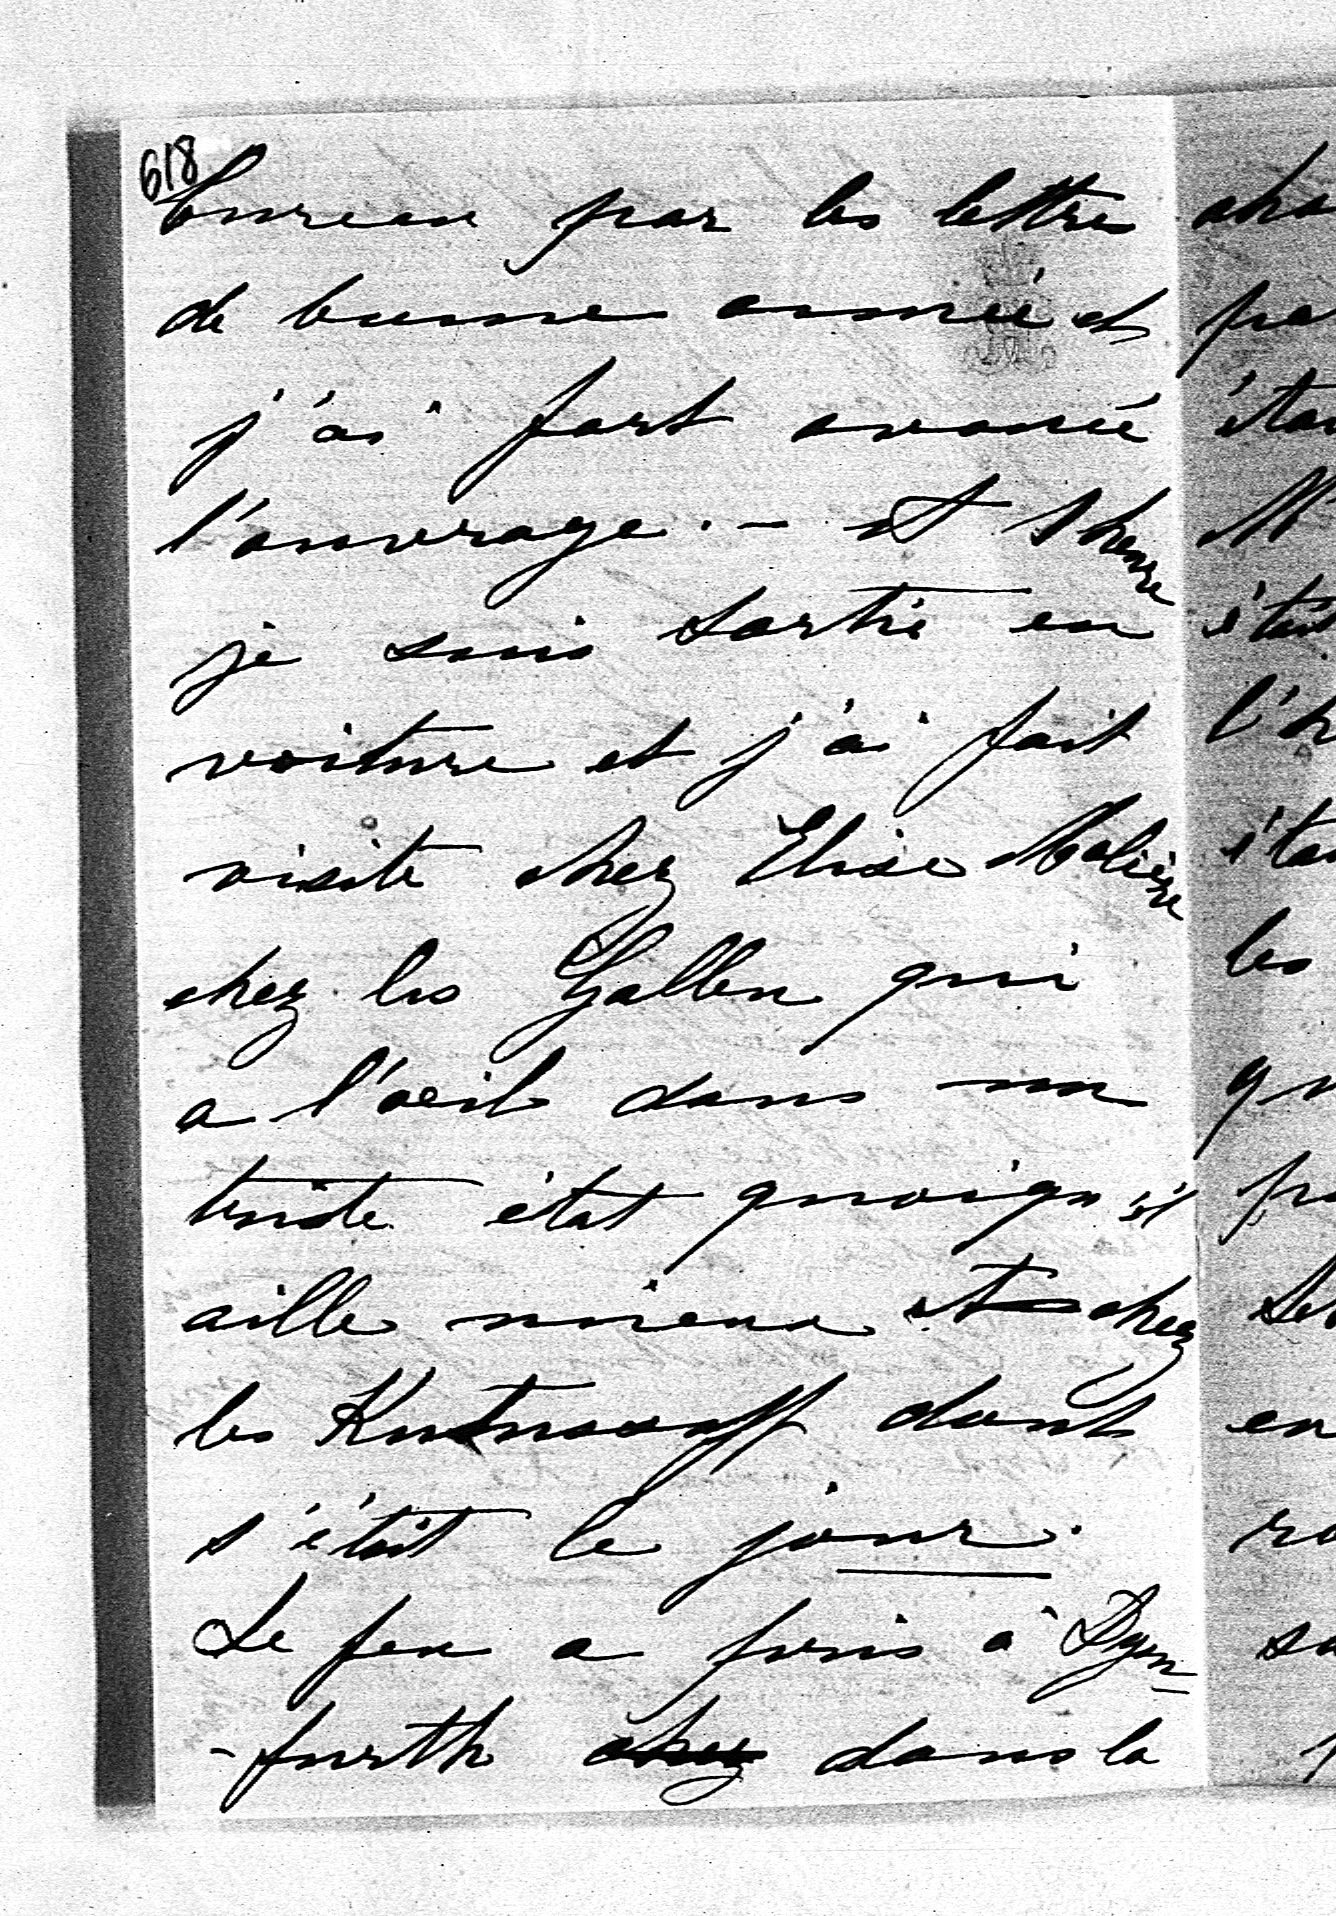 618
bureau par les lettres
de bonne année et
j'ai fort avancé
l'ouvrage. — et 1 heure
je suis sortie en
voiture et j'ai fait
visite chez Elise
chez les Gallen qui
a l'oeil dans un
triste état quoiqu'il
aille mieux et chez
les Kutusoff dont
s'était le jour.
Le feu a pris à Dyen-
-furth chez dans la